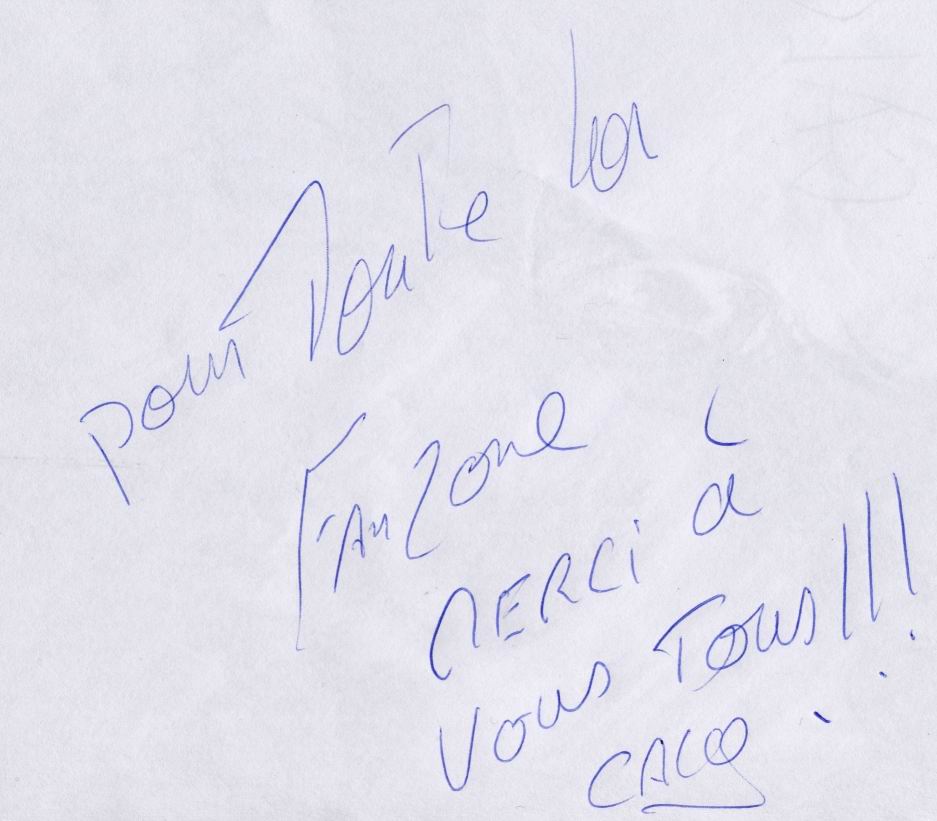 pour Toute la
FANZone
MERCi à
Vous Tous!!!
CALO